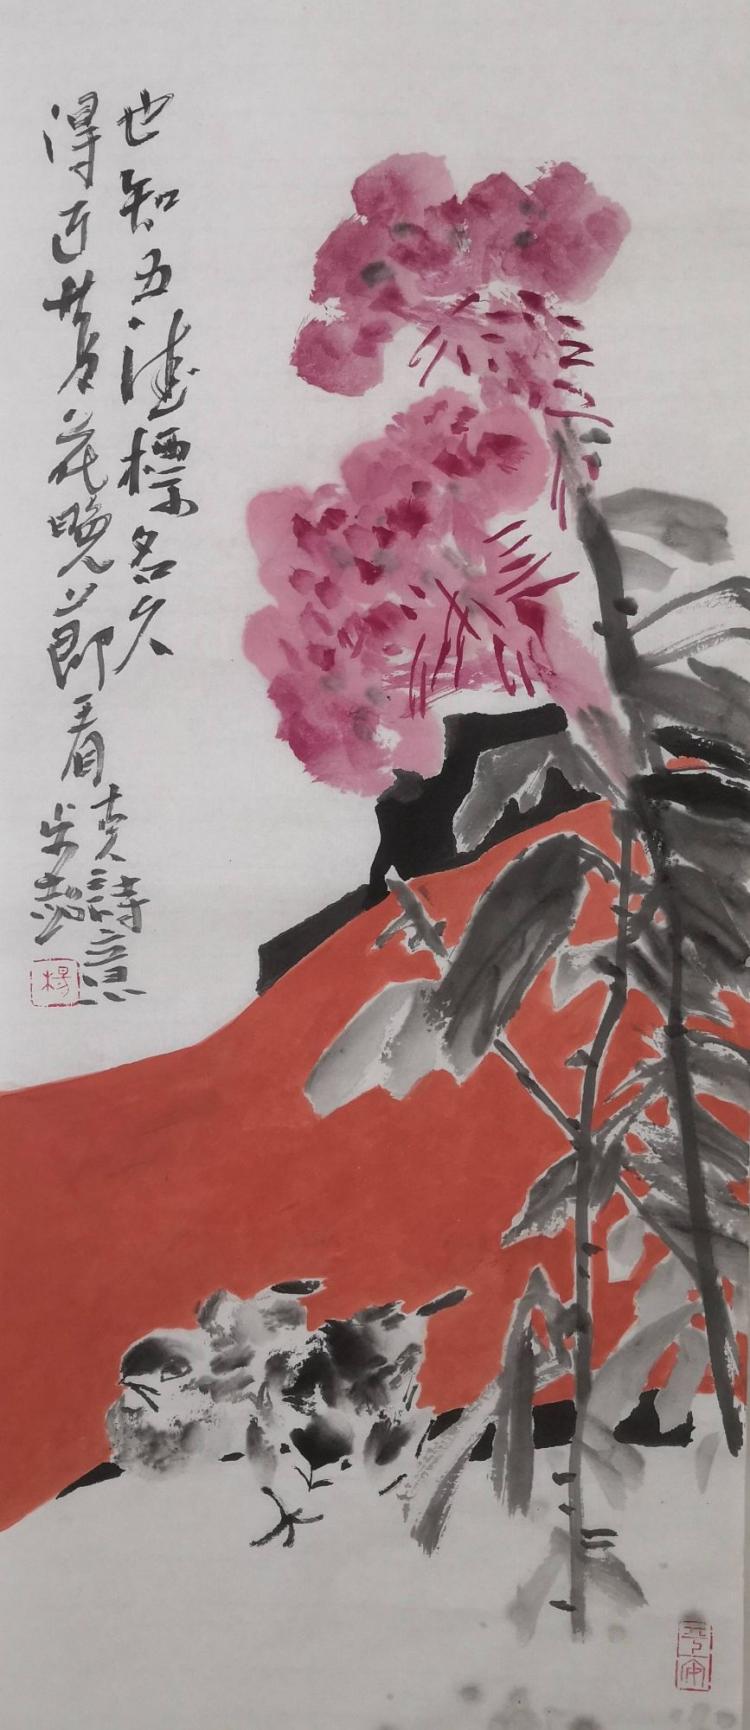 也知五德標名久
得近黄花晚節看
詩意
楊